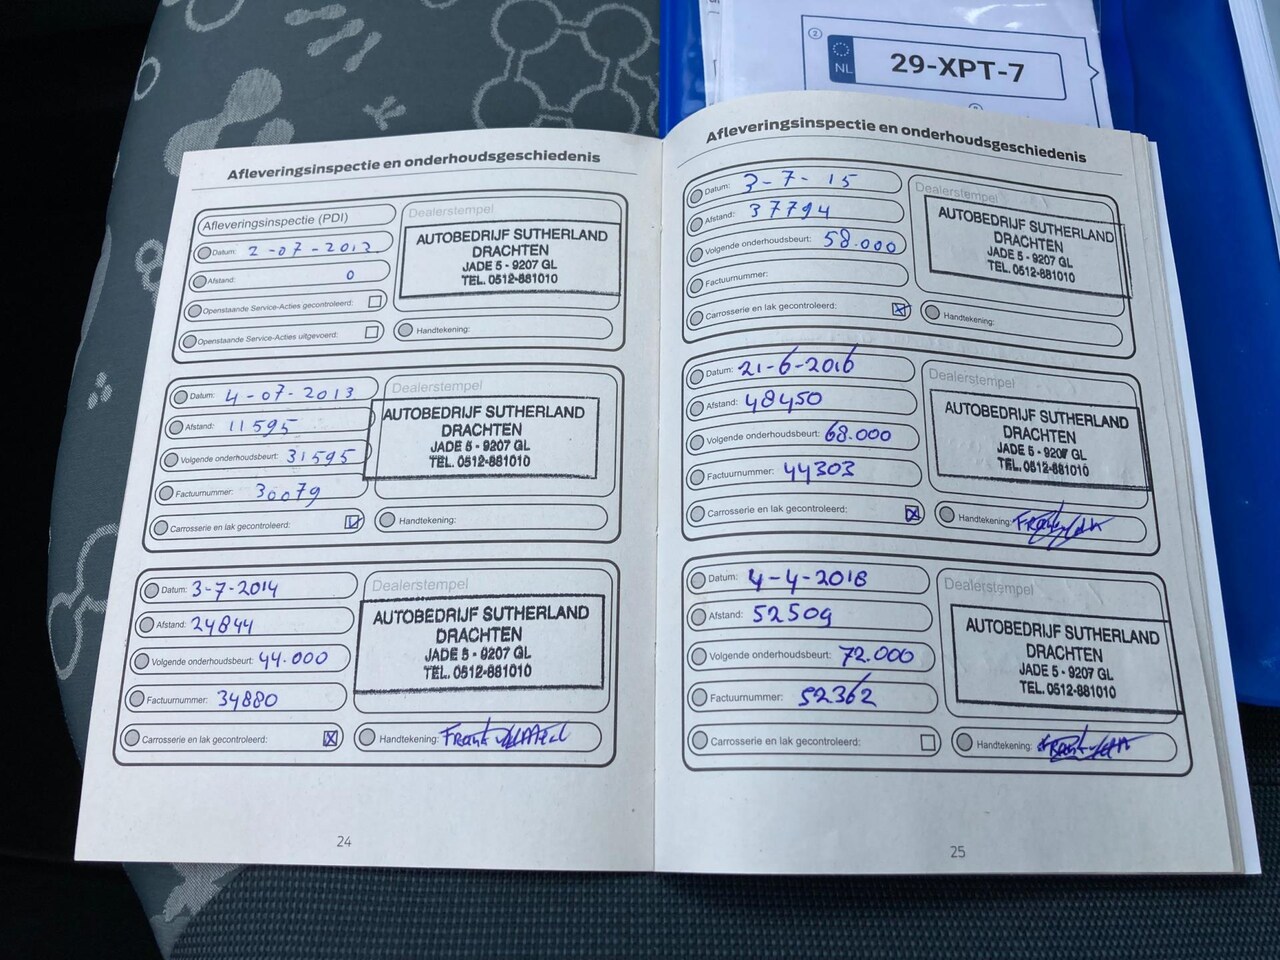 2
NL
29-XPT-7
Afleveringsinspectie en onderhoudsgeschiedenis
Afleveringsinspectie (PDI)
Datum: 2-07-2012
Afstand: 0
Openstaande Service-Acties gecontroleerd:
Openstaande Service-Acties uitgevoerd:
Dealerstempel
AUTOBEDRIJF SUTHERLAND
DRACHTEN
JADE 5 - 9207 GL
TEL. 0512-881010
Handtekening:
Datum: 4-07-2013
Afstand: 11595
Volgende onderhoudsbeurt: 31595
Factuurnummer: 30079
Carrosserie en lak gecontroleerd:
Dealerstempel
AUTOBEDRIJF SUTHERLAND
DRACHTEN
JADE 5 - 9207 GL
TEL. 0512-881010
Handtekening:
Datum: 3-7-2014
Afstand: 24844
Volgende onderhoudsbeurt: 44.000
Factuurnummer: 34880
Carrosserie en lak gecontroleerd:
Dealerstempel
AUTOBEDRIJF SUTHERLAND
DRACHTEN
JADE 5 - 9207 GL
TEL. 0512-881010
Handtekening:
24
Afleveringsinspectie en onderhoudsgeschiedenis
Datum: 3-7-15
Afstand: 37794
Volgende onderhoudsbeurt: 58.000
Factuurnummer:
Carrosserie en lak gecontroleerd:
Dealerstempel
AUTOBEDRIJF SUTHERLAND
DRACHTEN
JADE 5 - 9207 GL
TEL. 0512-881010
Handtekening:
Datum: 21-6-2016
Afstand: 48450
Volgende onderhoudsbeurt: 68.000
Factuurnummer: 44303
Carrosserie en lak gecontroleerd:
Dealerstempel
AUTOBEDRIJF SUTHERLAND
DRACHTEN
JADE 5 - 9207 GL
TEL. 0512-881010
Handtekening:
Datum: 4-4-2018
Afstand: 52509
Volgende onderhoudsbeurt: 72.000
Factuurnummer: 52362
Carrosserie en lak gecontroleerd:
Dealerstempel
AUTOBEDRIJF SUTHERLAND
DRACHTEN
JADE 5 - 9207 GL
TEL. 0512-881010
Handtekening:
25